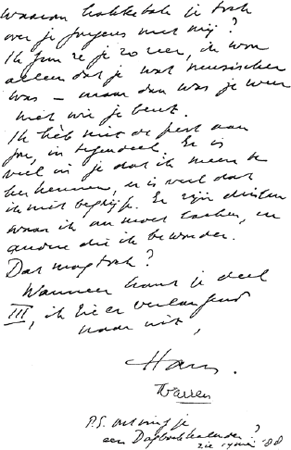 Waarom hakketak je toch
over je jongens met mij?
Ik gun ze je zo zeer, ik wou
alleen dat je wat menselijker
was – maar dan was je weer
niet wie je bent.
Ik heb niet de pest aan
jou, in tegendeel. Er is
veel in je dat ik meen te
herkennen, er is veel dat
ik niet begrijp. Er zijn dingen
waar ik om moet lachen, en
andere die ik bewonder.
Dat mag toch?
Wanneer komt je deel
III, ik zie er verlangend
naar uit,
Hans.
Warren
P.S. ontving je
een Dagboekkalender?
zie 14 mei '88